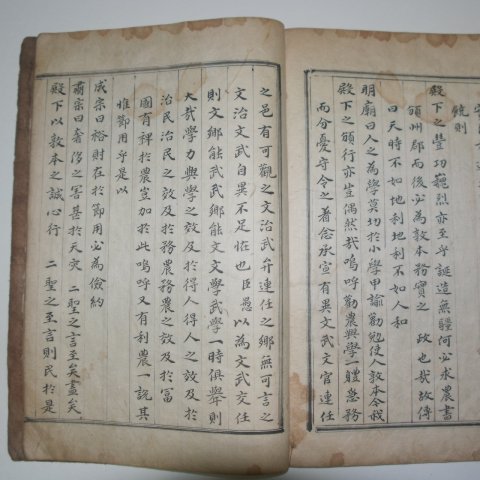 競則
殿下之豊功巍烈亦至乎誕造無疆何必求農書
頒州郡而後必為敦本務實之 政也哉故傳
曰天時不如地利地利不如人和
明廟曰人之為學莫切於小學申諭勸勉使人敦本今我
殿下之頒行亦豈偶然哉嗚呼勸農興學軆
而分憂守令之著念承宣有異文武文官連任
之邑有可觀之文治武弁連任之鄉無可言之
文治文武自異不足恠也臣愚以為文武交任
則文鄉能武武鄉能文文學武學一時俱舉則
大哉學力興學之效及於得人得人之效及於
治民治民之效及於務農務農之效及於富
國育裨於農豈加於此嗚呼又有利農一說其
惟節用乎是以
成宗曰裕財在於節用必為儉約
肅宗曰奢侈之害甚於天災 二聖之言至矣盡矣
殿下以敦本之誠心行 二聖之至言則民於是